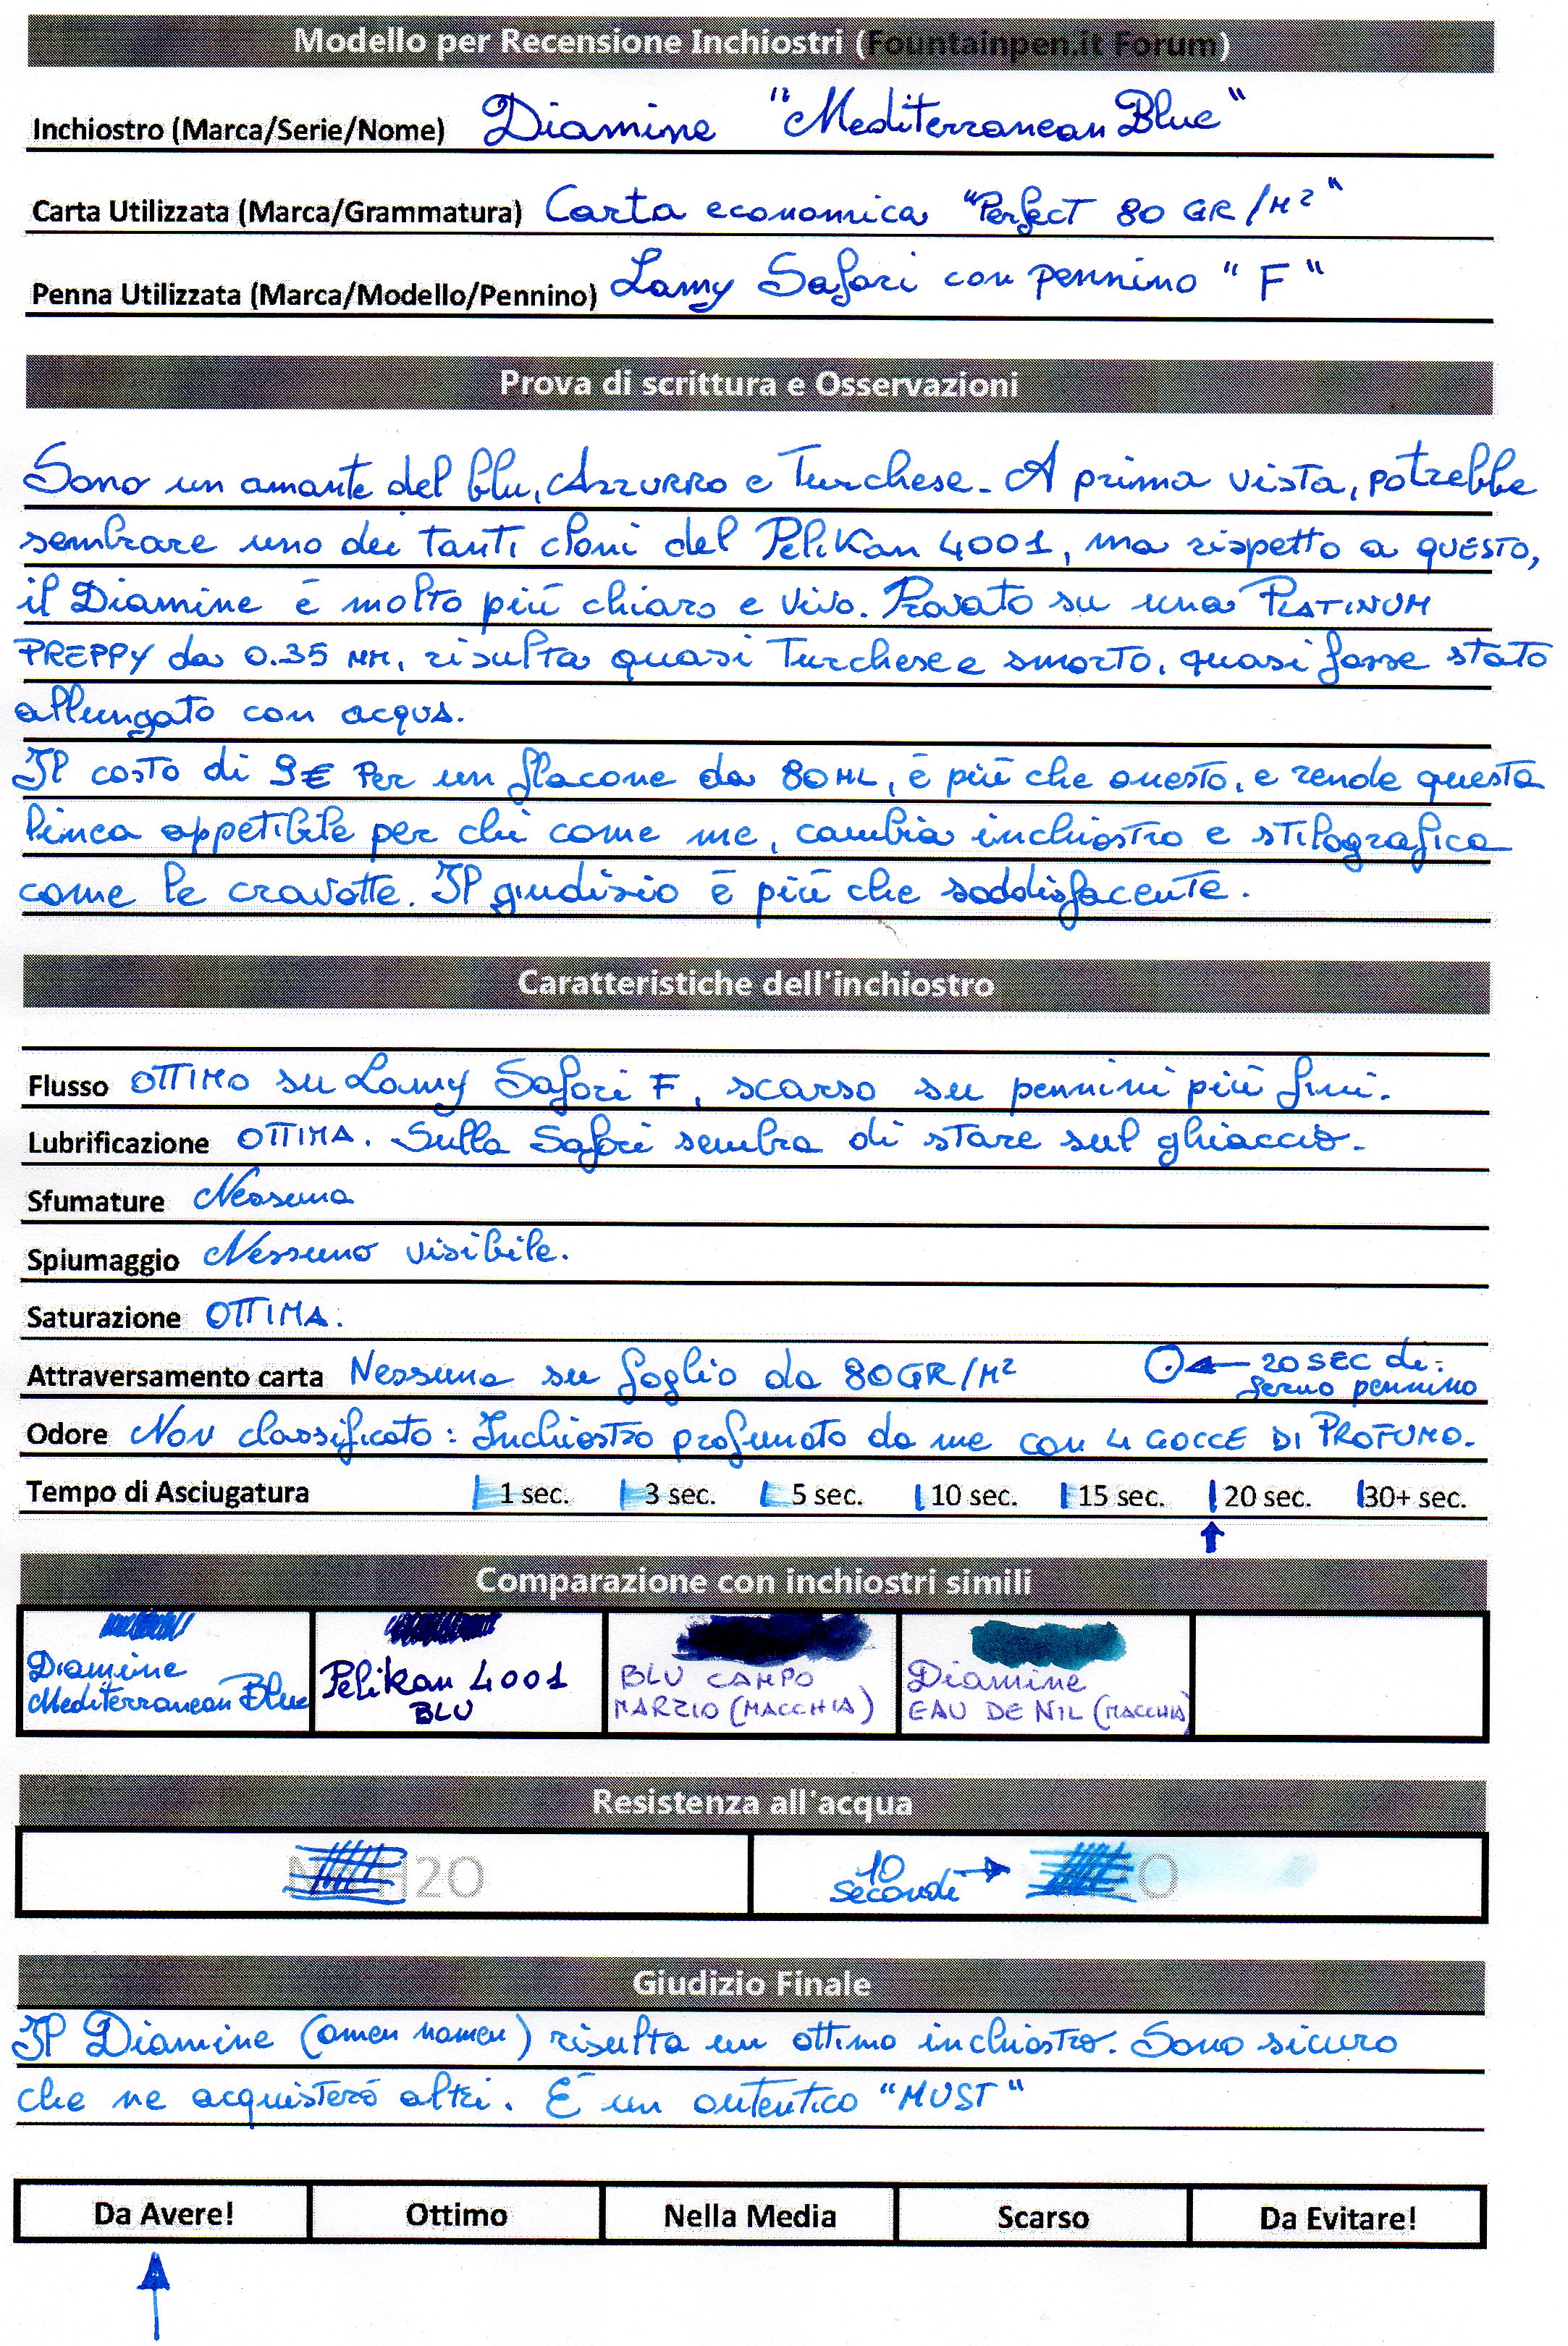 Modello per Recensione Inchiostri (Fountainpen.it Forum)
Inchiostro (Marca/Serie/Nome) Diamine "Mediterranean Blue"
Carta Utilizzata (Marca/Grammatura) Carta economica "Perfect 80 GR/M²"
Penna Utilizzata (Marca/Modello/Pennino) Lamy Safari con pennino "F"
Prova di scrittura e Osservazioni
Sono un amante del blu, Azzurro e Turchese. A prima vista, potrebbe
sembrare uno dei tanti cloni del Pelikan 4001, ma rispetto a questo,
il Diamine é molto piú chiaro e vivo. Provato su una PLATINUM
PREPPY da 0.35 MM, risulta quasi Turchese e smorto, quasi fosse stato
allungato con acqua.
Il costo di 9€ per un flacone da 80ML, é piú che onesto, e rende questa
linea appetibile per chi come me, cambia inchiostro e stilografica
come le cravatte. Il giudizio é piú che soddisfacente.
Caratteristiche dell'inchiostro
Flusso OTTIMO su Lamy Safari F, scarso su pennini piú fini.
Lubrificazione OTTIMA. Sulla Safari sembra di stare sul ghiaccio.
Sfumature Nessuna
Spiumaggio Nessuno visibile.
Saturazione OTTIMA.
Attraversamento carta Nessuno su foglio da 80GR/M² 20 SEC di
fermo pennino
Odore Non classificato: Inchiostro profumato da me con 4 GOCCE DI PROFUMO.
Tempo di Asciugatura 1 sec. 3 sec. 5 sec. 10 sec. 15 sec. 20 sec. 30+ sec.
Comparazione con inchiostri simili
Diamine Mediterranean Blue
Pelikan 4001 BLU
BLU CAMPO MARZIO (MACCHIA)
Diamine EAU DE NIL (MACCHIA)
Resistenza all'acqua
H2O 10 secondi O
Giudizio Finale
Il Diamine (omen nomen) risulta un ottimo inchiostro. Sono sicuro
che ne acquisteró altri. É un autentico "MUST"
Da Avere! Ottimo Nella Media Scarso Da Evitare!